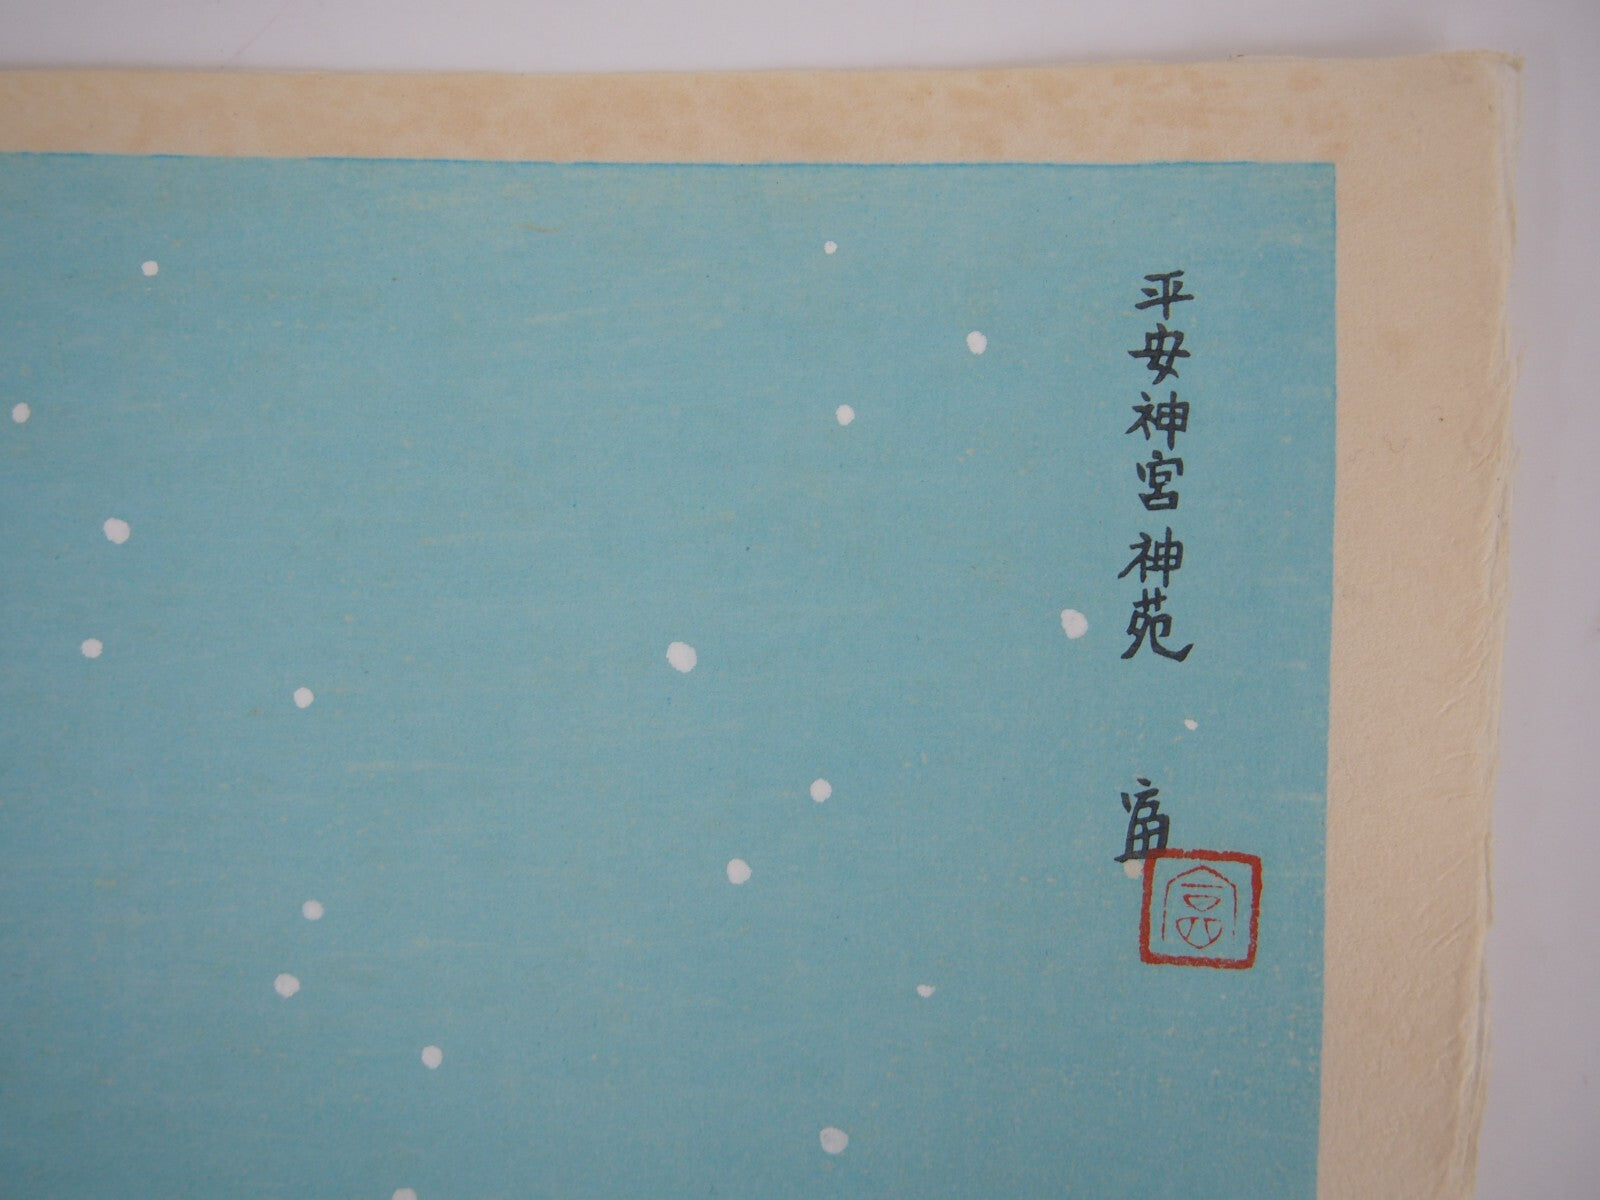 平安神宮神苑
富